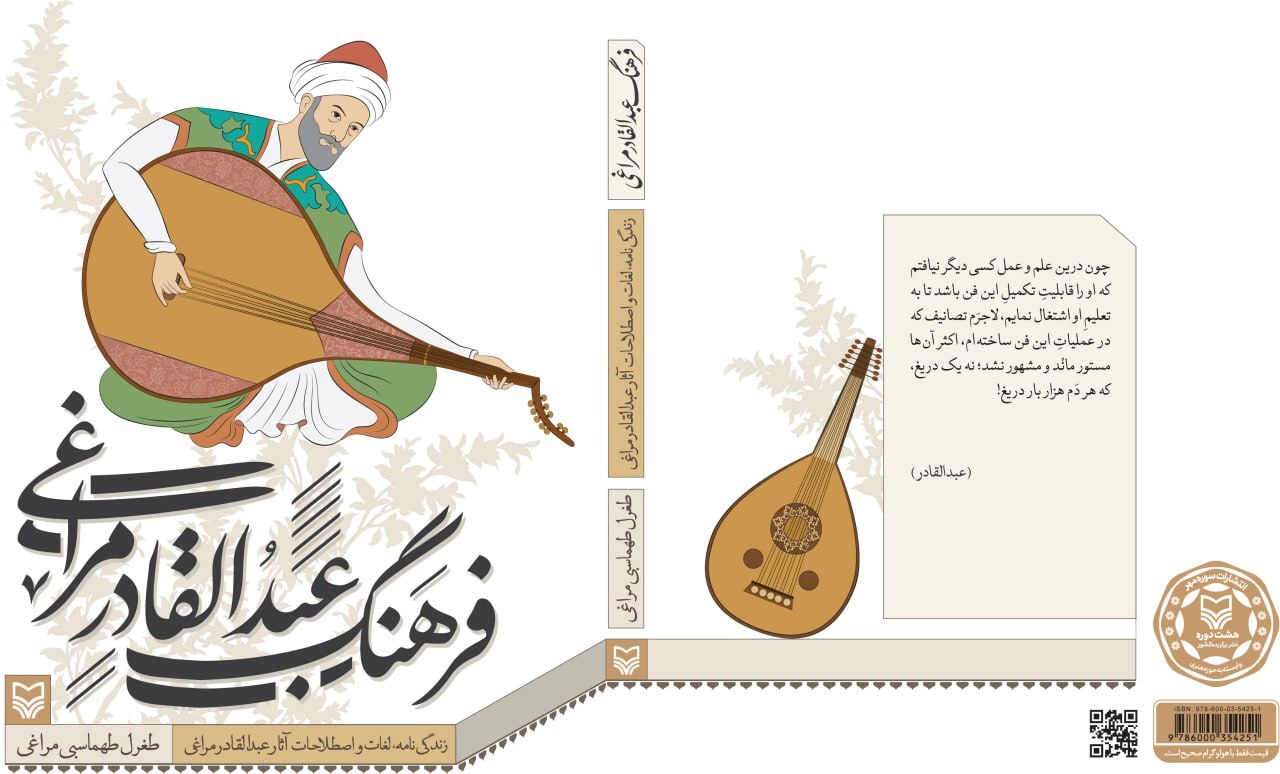 فرهنگ عبدالقادر مراغی
زندگی نامه، لغات و اصطلاحات آثار عبدالقادر مراغی
طغرل طهماسبی مراغی
فرهنگ عبدالقادر مراغی
زندگی نامه، لغات و اصطلاحات آثار عبدالقادر مراغی
طغرل طهماسبی مراغی
چون درین علم و عمل کسی دیگر نیافتم
که او را قابلیتِ تکمیلِ این فن باشد تا به
تعلیمِ او اشتغال نمایم، لاجرَم تصانیف که
در عملیاتِ این فن ساخته‌ام، اکثر آن‌ها
مستور مانْد و مشهور نشد؛ نه یک دریغ،
که هر دَم هزار بار دریغ!
(عبدالقادر)
انتشارات سوره مهر
هشت دوره
ناشر برگزیده کشور
وابسته به حوزه هنری
ISBN: 978-600-03-5425-1
9 786000 354251
قیمت فقط با هولوگرام صحیح است.